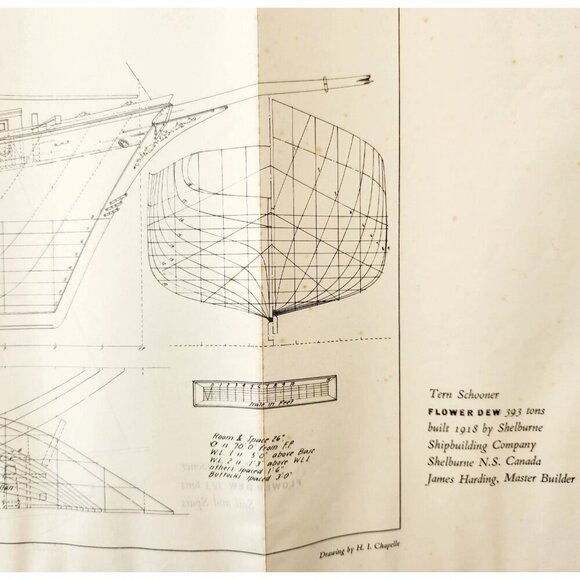 Scale in Feet
Room & Space 26"
⦻ is 70'0" from F.P.
W.L. 1 is 5'0" above Base
W.L. 2 is 1'3" above W.L.1
others spaced 1'6"
Buttocks spaced 3'0"
Tern Schooner
FLOWER DEW 393 tons
built 1918 by Shelburne
Shipbuilding Company
Shelburne N.S. Canada
James Harding, Master Builder
Drawing by H. I. Chapelle